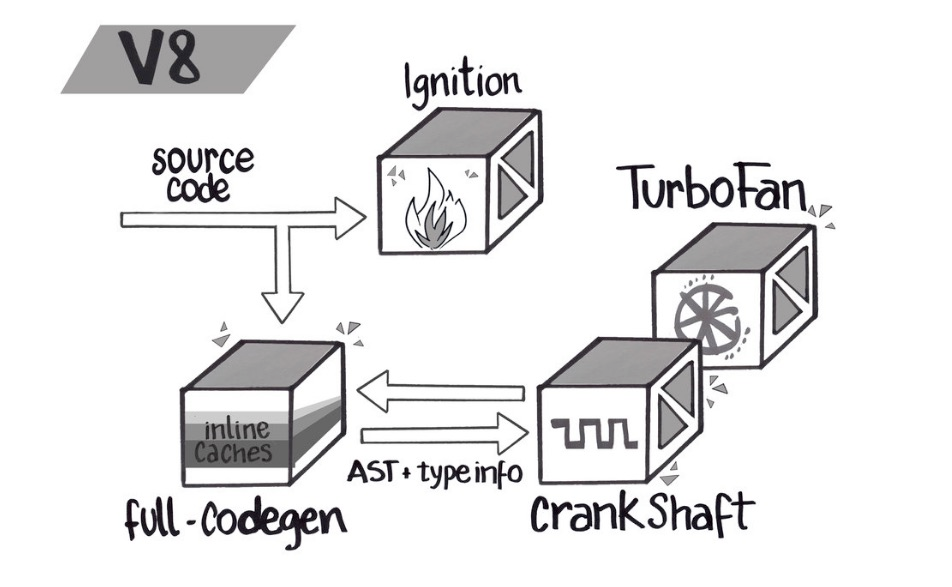 V8
Ignition
source
code
TurboFan
inline
caches
AST + type info
full-codegen
CrankShaft